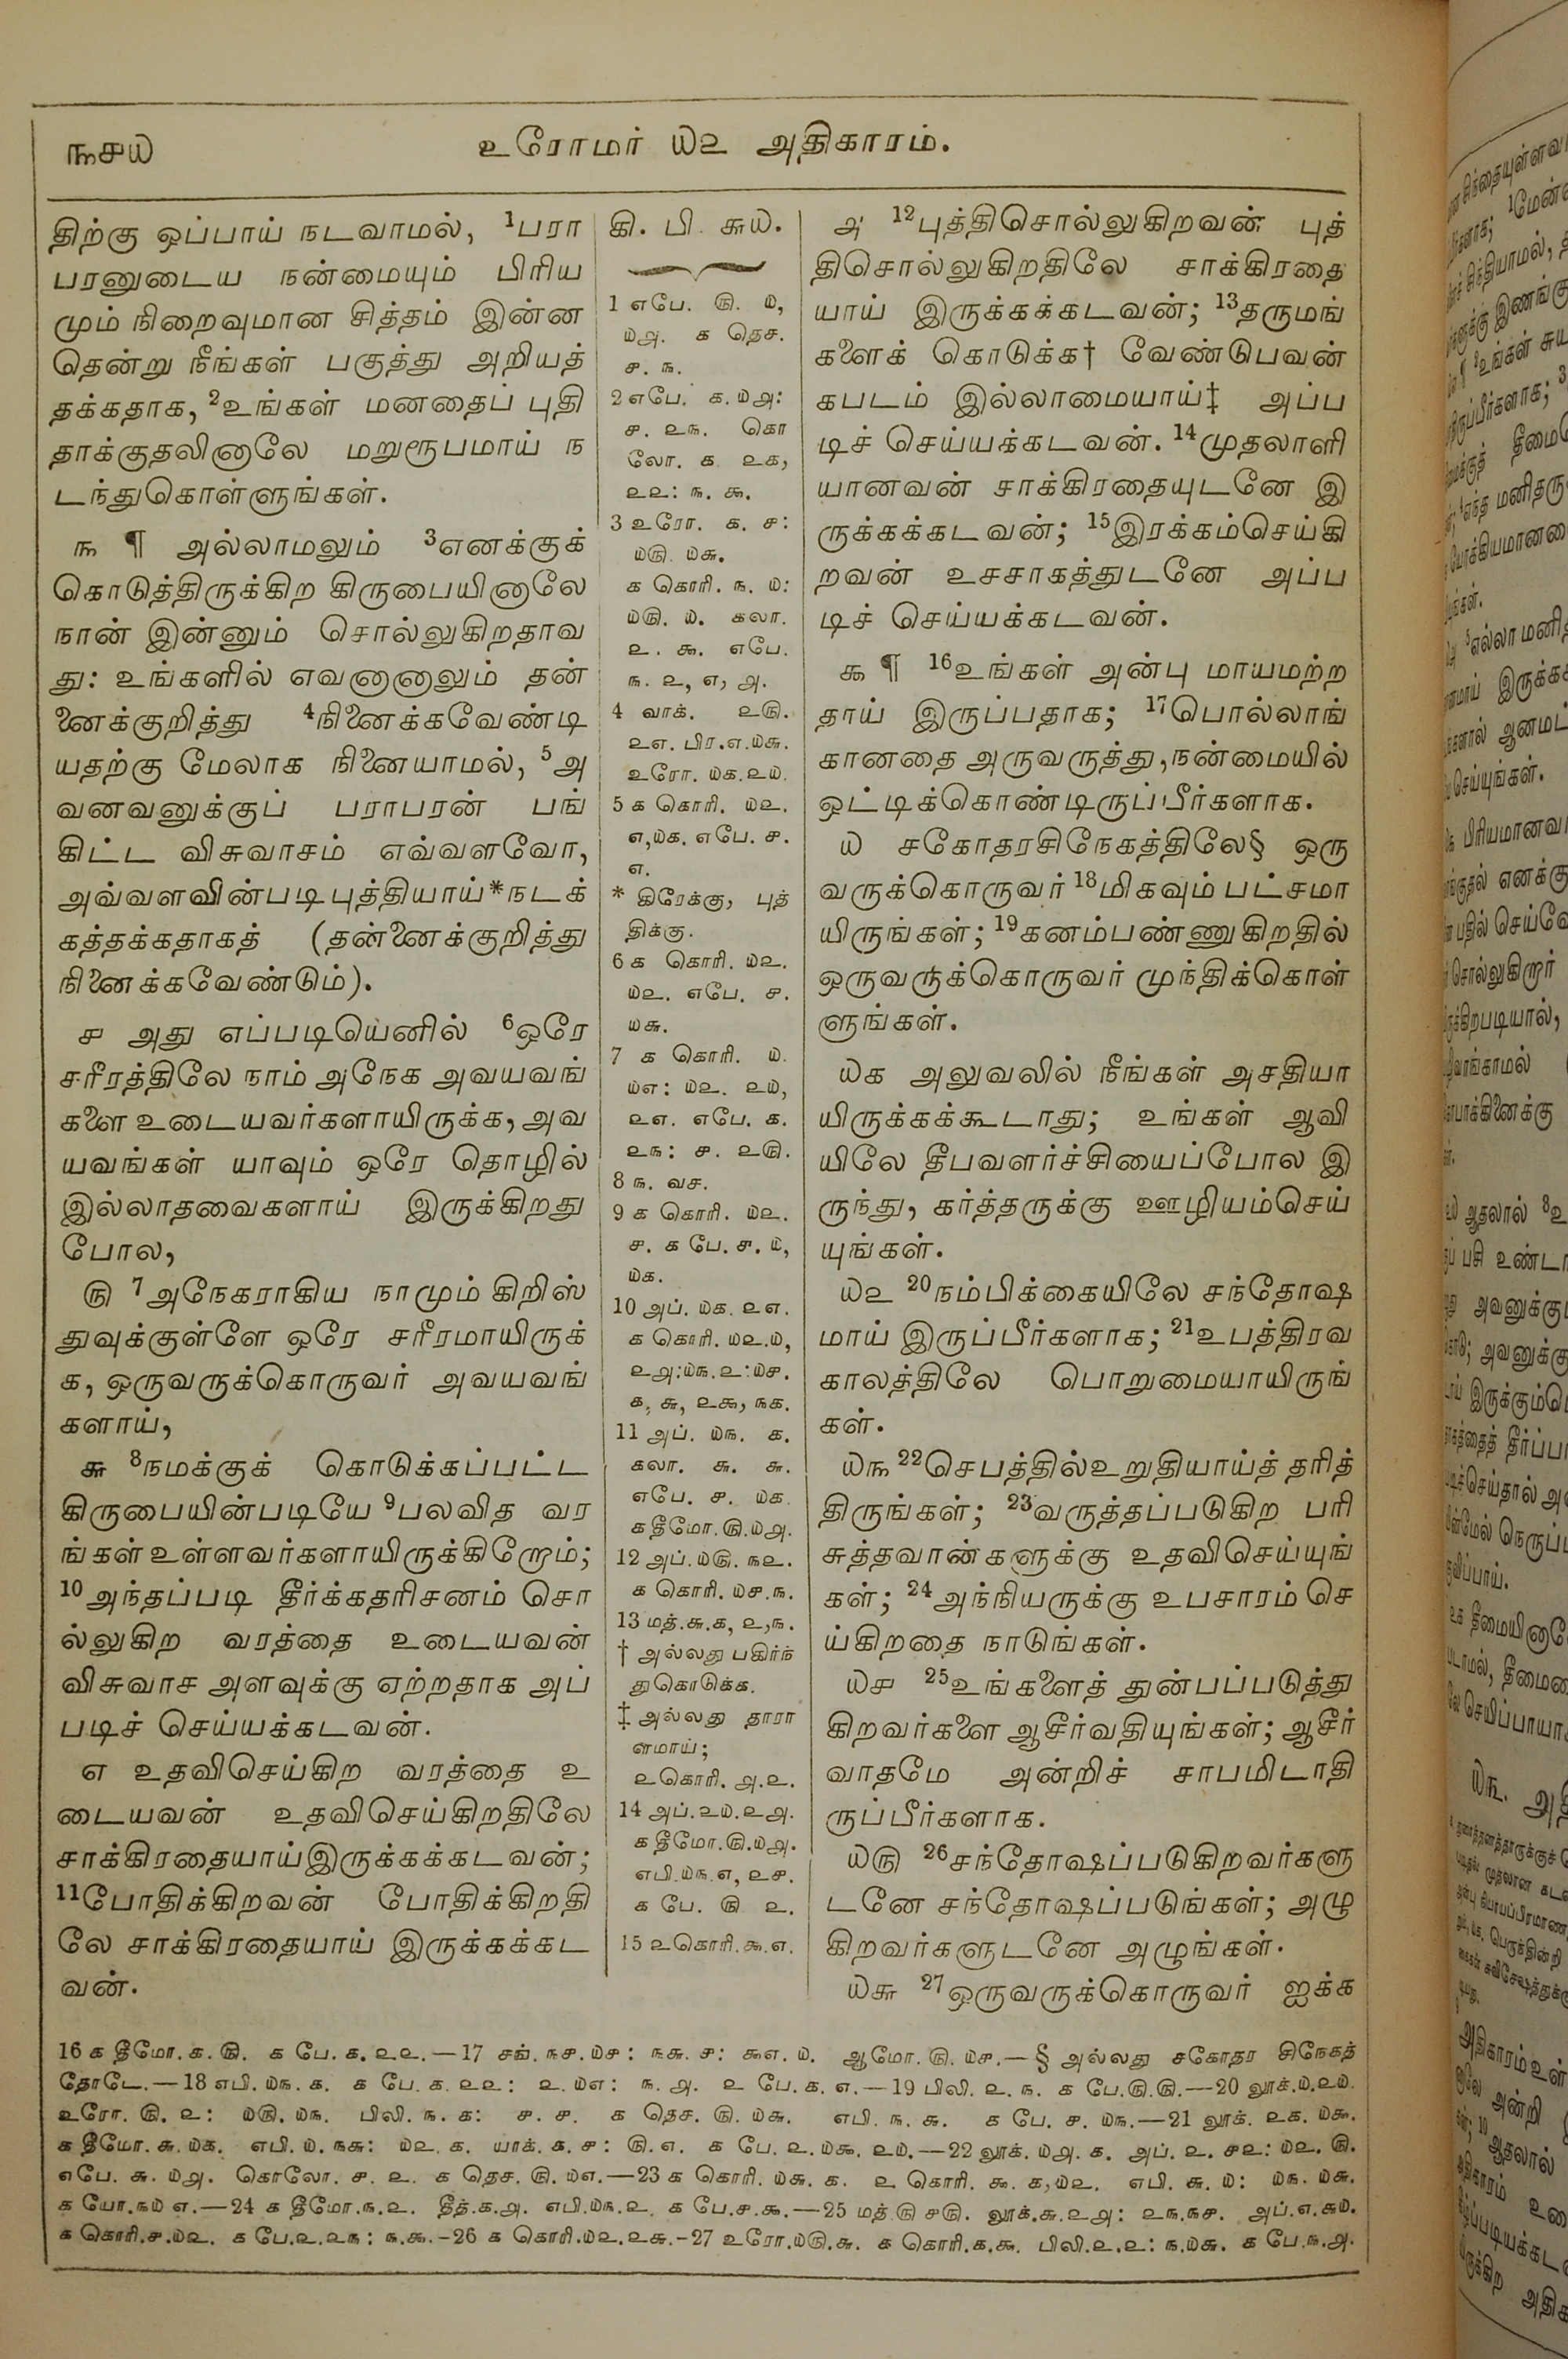 ௩௪௰
உரோமர் ௰௨ அதிகாரம்.
திற்கு ஒப்பாய் நடவாமல், 1பரா
பரனுடைய நன்மையும் பிரிய
மும் நிறைவுமான சித்தம் இன்ன
தென்று நீங்கள் பகுத்து அறியத்
தக்கதாக, 2உங்கள் மனதைப் புதி
தாக்குதலினாலே மறுரூபமாய் ந
டந்துகொள்ளுங்கள்.
௩ ¶ அல்லாமலும் 3எனக்குக்
கொடுத்திருக்கிற கிருபையினாலே
நான் இன்னும் சொல்லுகிறதாவ
து: உங்களில் எவனானாலும் தன்
னைக்குறித்து 4நினைக்கவேண்டி
யதற்கு மேலாக நினையாமல், 5அ
வனவனுக்குப் பராபரன் பங்
கிட்ட விசுவாசம் எவ்வளவோ,
அவ்வளவின்படி புத்தியாய்*நடக்
கத்தக்கதாகத் (தன்னைக்குறித்து
நினைக்கவேண்டும்).
௪ அது எப்படியெனில் 6ஒரே
சரீரத்திலே நாம் அநேக அவயவங்
களை உடையவர்களாயிருக்க, அவ
யவங்கள் யாவும் ஒரே தொழில்
இல்லாதவைகளாய் இருக்கிறது
போல,
௫ 7அநேகராகிய நாமும் கிறிஸ்
துவுக்குள்ளே ஒரே சரீரமாயிருக்
க, ஒருவருக்கொருவர் அவயவங்
களாய்,
௬ 8நமக்குக் கொடுக்கப்பட்ட
கிருபையின்படியே 9பலவித வர
ங்கள் உள்ளவர்களாயிருக்கிறோம்;
10அந்தப்படி தீர்க்கதரிசனம் சொ
ல்லுகிற வரத்தை உடையவன்
விசுவாச அளவுக்கு ஏற்றதாக அப்
படிச் செய்யக்கடவன்.
௭ உதவிசெய்கிற வரத்தை உ
டையவன் உதவிசெய்கிறதிலே
சாக்கிரதையாய்இருக்கக்கடவன்;
11போதிக்கிறவன் போதிக்கிறதி
லே சாக்கிரதையாய் இருக்கக்கட
வன்.
கி. பி. ௬௰.
1 எபே. ௫. ௰,
௰௮. ௧ தெச.
௪. ௩.
2 எபே. ௧. ௰௮:
௪. ௨௩. கொ
லோ. ௧. ௨௧,
௨௨: ௩. ௯.
3 உரோ. ௧. ௪:
௰௫. ௰௬.
௧ கொரி. ௩. ௰:
௰௫. ௰. கலா.
௨. ௯. எபே.
௩. ௨, ௭, ௮.
4 வாக். ௨௫.
௨௭. பிர.௭.௰௬.
உரோ. ௰௧.௨௰.
5 ௧ கொரி. ௰௨.
௭,௰௧. எபே. ௪.
௭.
* கிரேக்கு, புத்
திக்கு.
6 ௧ கொரி. ௰௨.
௰௨. எபே. ௪.
௰௬.
7 ௧ கொரி. ௰.
௰௭: ௰௨. ௨௰,
௨௭. எபே. ௧.
௨௩: ௪. ௨௫.
8 ௩. வச.
9 ௧ கொரி. ௰௨.
௪. ௧ பே. ௪. ௰,
௰௧.
10 அப். ௰௧. ௨௭.
௧ கொரி. ௰௨.௰,
௨௮:௰௩.௨:௰௪.
௧, ௬, ௨௯, ௩௧.
11 அப். ௰௩. ௧.
கலா. ௬. ௬.
எபே. ௪. ௰௧.
௧தீமோ.௫.௰௮.
12 அப்.௰௫. ௩௨.
௧ கொரி. ௰௪.௩.
13 மத்.௬.௧, ௨,௩.
† அல்லது பகிர்ந்
துகொடுக்க.
‡ அல்லது தாரா
ளமாய்;
௨கொரி. ௮.௨.
14 அப்.௨௰.௨௮.
௧தீமோ.௫.௰௮.
எபி.௰௩.௭, ௨௪.
௧ பே. ௫. ௨.
15 ௨கொரி.௯.௭.
௮ 12புத்திசொல்லுகிறவன் புத்
திசொல்லுகிறதிலே சாக்கிரதை
யாய் இருக்கக்கடவன்; 13தருமங்
களைக் கொடுக்க† வேண்டுபவன்
கபடம் இல்லாமையாய்‡ அப்ப
டிச் செய்யக்கடவன். 14முதலாளி
யானவன் சாக்கிரதையுடனே இ
ருக்கக்கடவன்; 15இரக்கம்செய்கி
றவன் உசசாகத்துடனே அப்ப
டிச் செய்யக்கடவன்.
௯ ¶ 16உங்கள் அன்பு மாயமற்ற
தாய் இருப்பதாக; 17பொல்லாங்
கானதை அருவருத்து,நன்மையில்
ஒட்டிக்கொண்டிருப்பீர்களாக.
௰ சகோதரசிநேகத்திலே§ ஒரு
வருக்கொருவர் 18மிகவும் பட்சமா
யிருங்கள்; 19கனம்பண்ணுகிறதில்
ஒருவருக்கொருவர் முந்திக்கொள்
ளுங்கள்.
௰௧ அலுவலில் நீங்கள் அசதியா
யிருக்கக்கூடாது; உங்கள் ஆவி
யிலே தீபவளர்ச்சியைப்போல இ
ருந்து, கர்த்தருக்கு ஊழியம்செய்
யுங்கள்.
௰௨ 20நம்பிக்கையிலே சந்தோஷ
மாய் இருப்பீர்களாக; 21உபத்திரவ
காலத்திலே பொறுமையாயிருங்
கள்.
௰௩ 22செபத்தில்உறுதியாய்த் தரித்
திருங்கள்; 23வருத்தப்படுகிற பரி
சுத்தவான்களுக்கு உதவிசெய்யுங்
கள்; 24அந்நியருக்கு உபசாரம் செ
ய்கிறதை நாடுங்கள்.
௰௪ 25உங்களைத் துன்பப்படுத்து
கிறவர்களை ஆசீர்வதியுங்கள்; ஆசீர்
வாதமே அன்றிச் சாபமிடாதி
ருப்பீர்களாக.
௰௫ 26சந்தோஷப்படுகிறவர்களு
டனே சந்தோஷப்படுங்கள்; அழு
கிறவர்களுடனே அழுங்கள்.
௰௬ 27ஒருவருக்கொருவர் ஐக்க
16 ௧ தீமோ.௧.௫. ௧ பே.௧.௨௨.—17 சங்.௩௪.௰௪: ௩௬.௪: ௯௭.௰. ஆமோ.௫.௰௪.—§ அல்லது சகோதர சிநேகத்
தோடே.—18 எபி.௰௩.௧. ௧ பே.௧.௨௨: ௨.௰௭: ௩.௮. ௨ பே.௧.௭.—19 பிலி.௨.௩. ௧ பே.௫.௫.—20 லூக்.௰.௨௰.
உரோ.௫.௨: ௰௫.௰௩. பிலி.௩.௧: ௪.௪. ௧ தெச.௫.௰௬. எபி.௩.௬. ௧ பே.௪.௰௩.—21 லூக்.௨௧.௰௯.
௧ தீமோ.௬.௰௧. எபி.௰.௩௬: ௰௨.௧. யாக்.௧.௪: ௫.௭. ௧ பே.௨.௰௯.௨௰.—22 லூக்.௰௮.௧. அப்.௨.௪௨: ௰௨.௫.
எபே.௬.௰௮. கொலோ.௪.௨. ௧ தெச.௫.௰௭.—23 ௧ கொரி.௰௬.௧. ௨ கொரி.௯.௧,௰௨. எபி.௬.௰: ௰௩.௰௬.
௧ யோ.௩௰ ௭.—24 ௧ தீமோ.௩.௨. தீத்.௧.௮. எபி.௰௩.௨. ௧ பே.௪.௯.—25 மத் ௫ ௪௫. லூக்.௬.௨௮: ௨௩.௩௪. அப்.௭.௬௰.
௧ கொரி.௪.௰௨. ௧ பே.௨.௨௩: ௩.௯.-26 ௧ கொரி.௰௨.௨௬.-27 உரோ.௰௫.௬. ௧ கொரி.௧.௯. பிலி.௨.௨: ௩.௰௬. ௧ பே.௩.௮.